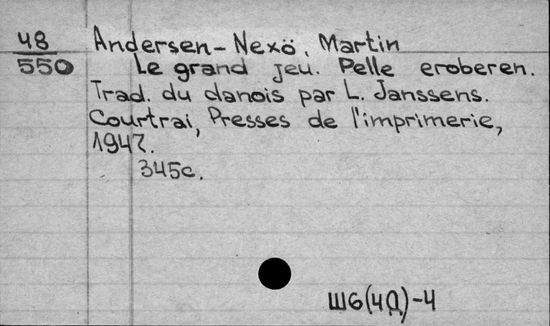 48
550
Andersen-Nexö, Martin
Le grand jeu. Pelle eroberen.
Trad. du danois par L. Janssens.
Courtrai, Presses de l'imprimerie,
1947.
345c.
Ш6(4Д)-4